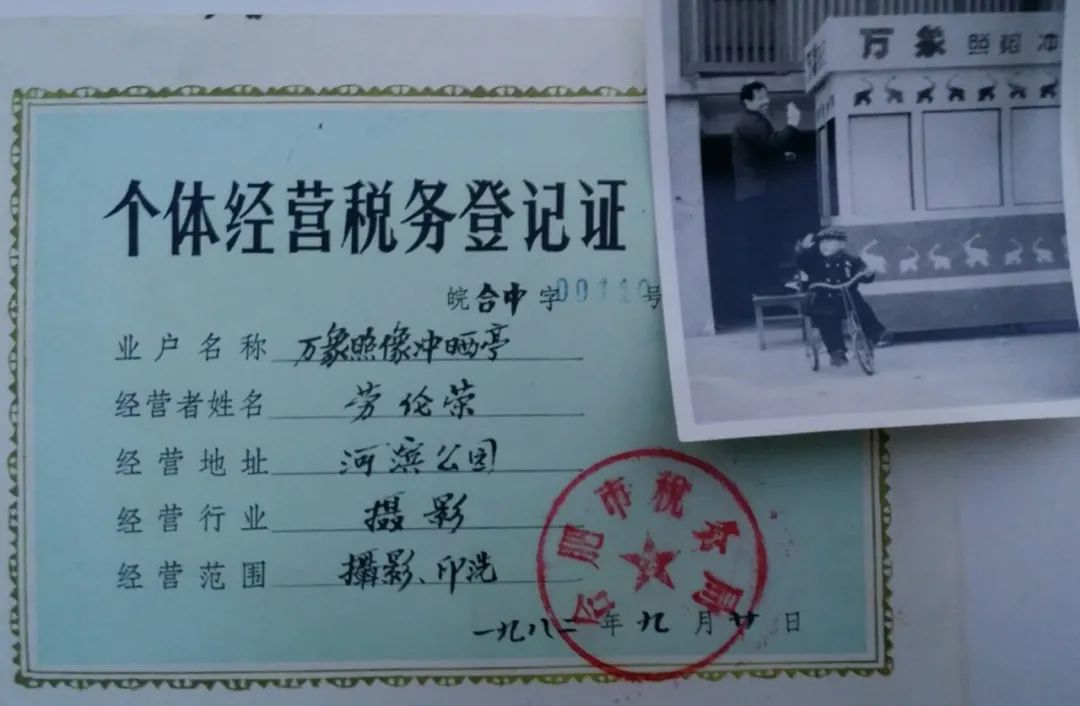 个体经营税务登记证
皖合中字00110号
业户名称 万象照像冲晒亭
经营者姓名 劳伦荣
经营地址 河滨公园
经营行业 摄影
经营范围 攝影、印洗
一九八二年九月廿日
合肥市税务局
万象 照相冲